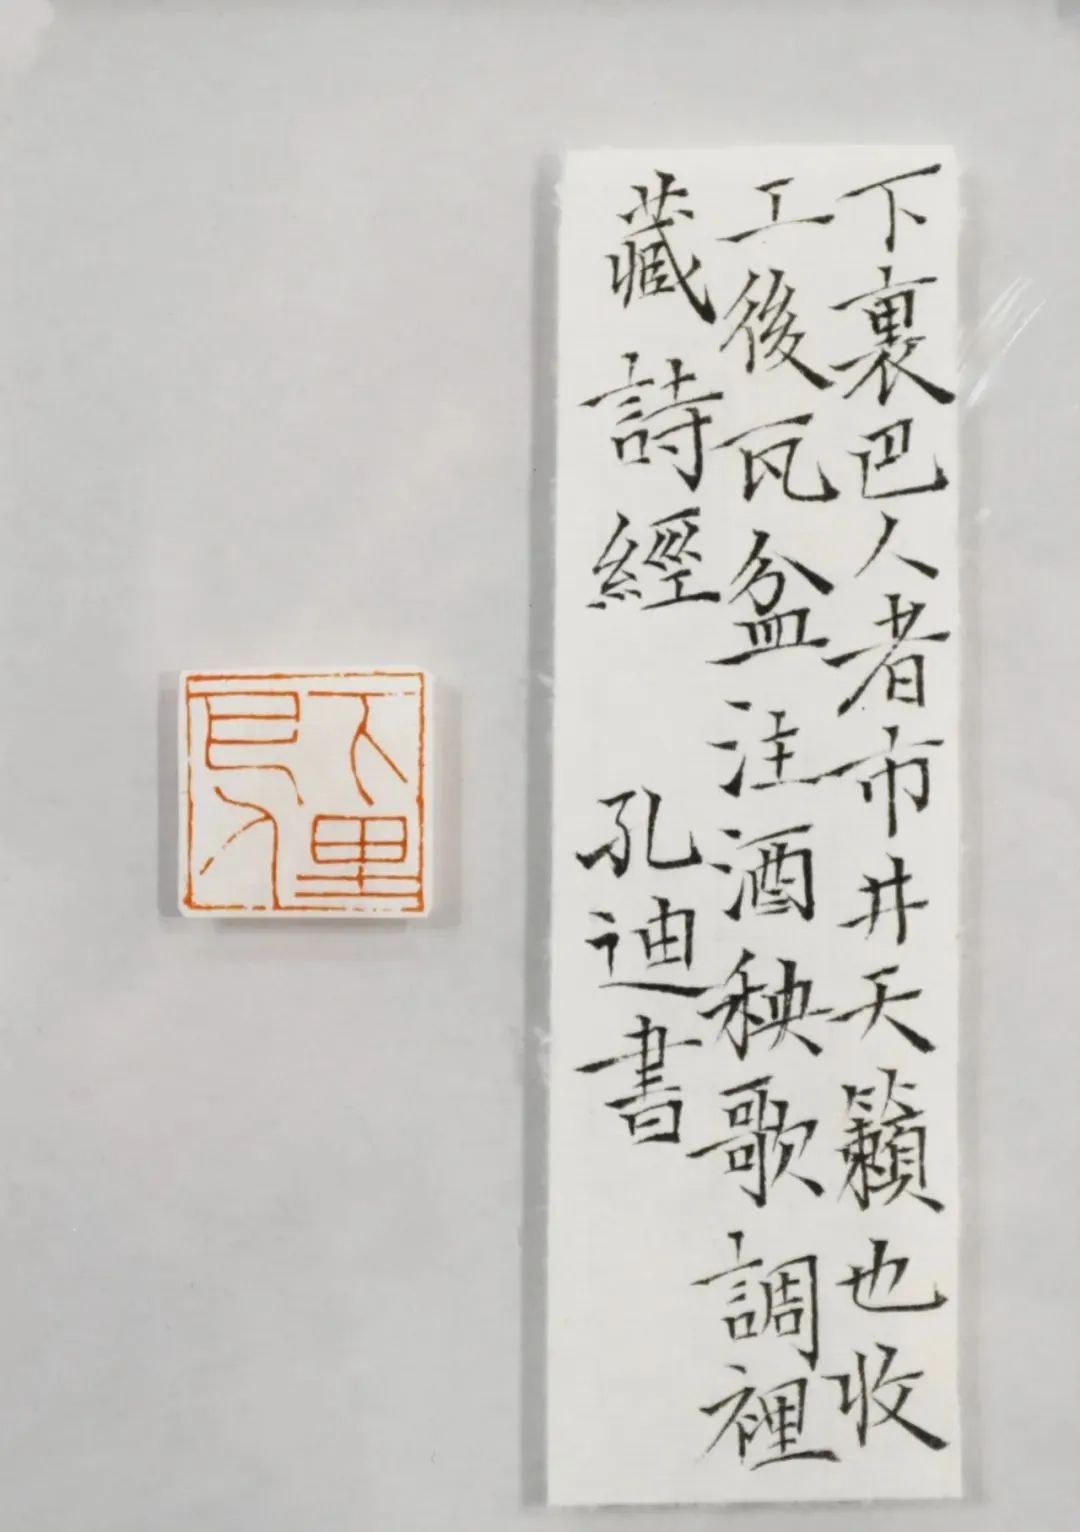 下裏巴人者市井天籟也收
工後瓦盆注酒秧歌調裡
藏詩經 孔迪書
下里巴人